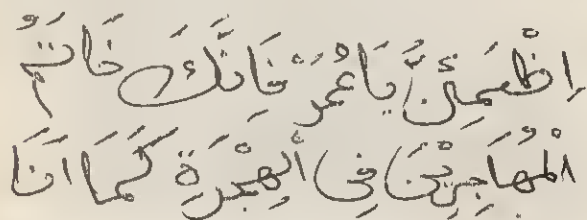 اِظْمَئِنَّ يَا عُمَرُ فَاِنَّكَ خَاتَمُ
الْمُهَاجِرِيْنَ فِى الْهِجْرَةِ كَمَا اَنَا